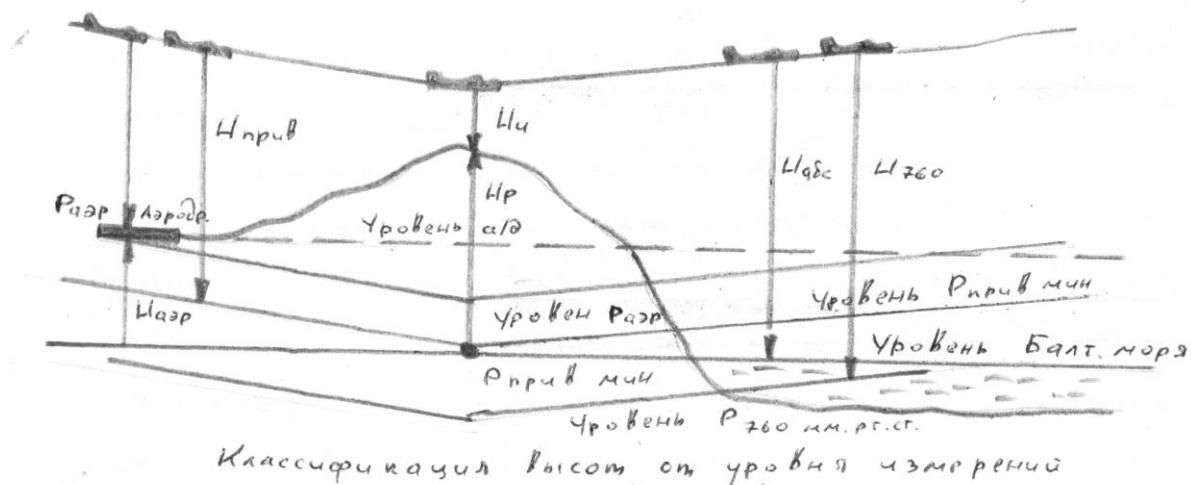 Нприв
Ни
Набс
Н760
Раэр
Аэродр.
Нр
Уровень а/д
Наэр
Уровен Раэр
Уровень Рприв мин
Уровень Балт. моря
Рприв мин
Уровень Р760 мм.рт.ст.
Классификация высот от уровня измерений